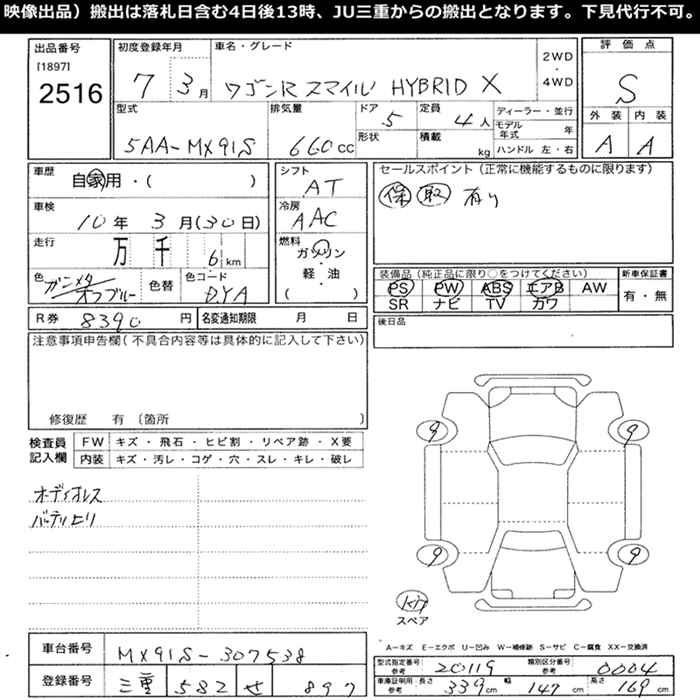 映像出品）搬出は落札日含む4日後13時、JU三重からの搬出となります。下見代行不可。
出品番号
[1897]
2516
初度登録年月
7 3月
車名・グレード
ワゴンR スマイル HYBRID X
2WD
・
4WD
評価点
S
外装 内装
A A
型式
5AA-MX91S
排気量
660cc
ドア 5
形状
定員 4人
積載 kg
ディーラー・並行
モデル年式 年
ハンドル 左・右
車歴
自家用・( )
車検
10年 3月(30日)
走行
万 千 6km
色 ガンメタ/オフブルー 色替
色コード
DYA
シフト
AT
冷房
AAC
燃料
ガソリン
・
軽・油
( )
セールスポイント (正常に機能するものに限ります)
保 取 有り
装備品 (純正品に限り○をつけてください)
PS PW ABS エアB AW
SR ナビ TV カワ
新車保証書
有・無
R券 8390円 名変通知期限 月 日
後日品
注意事項申告欄(不具合内容等は具体的に記入して下さい)
修復歴 有〔箇所 〕
検査員記入欄
FW キズ・飛石・ヒビ割・リペア跡・X要
内装 キズ・汚レ・コゲ・穴・スレ・キレ・破レ
オーディオレス
9 9
9 9
スペア
A－キズ E－エクボ U－凹み W－補修跡 S－サビ C－腐食 XX－交換済
車台番号 MX91S-307538
登録番号 三重 582 せ 897
型式指定番号 参考 20119 類別区分番号 参考 0004
車庫証明用 参考 長さ 339cm 幅 147cm 高さ 169cm